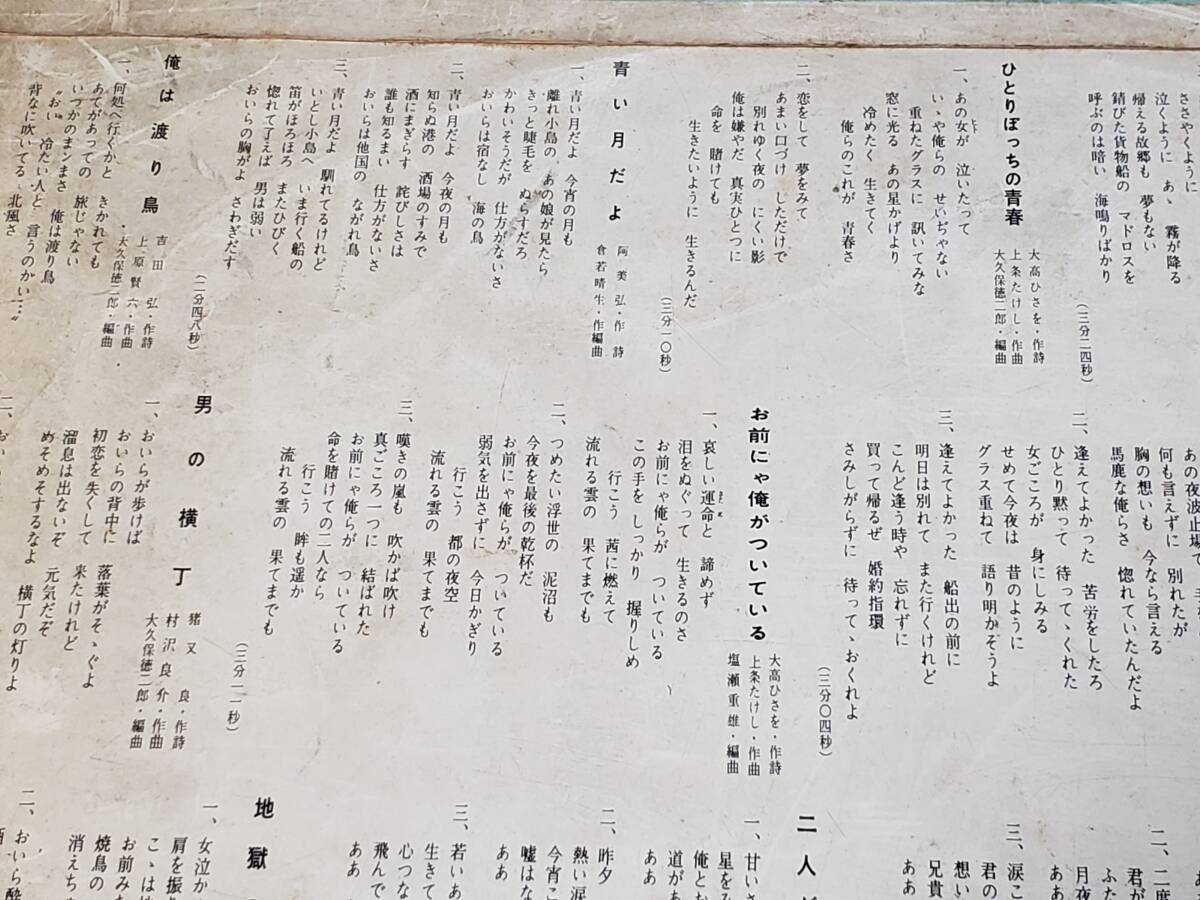 ささやくように
泣くように あゝ 霧が降る
帰える故郷も 夢もない
錆びた貨物船の マドロスを
呼ぶのは暗い 海鳴りばかり
(三分二四秒)
ひとりぼっちの青春
大高ひさを・作詩
上条たけし・作曲
大久保徳二郎・編曲
一、あの女が 泣いたって
いゝや俺らの せいぢゃない
重ねたグラスに 訊いてみな
窓に光る あの星かげより
冷めたく 生きてく
俺らのこれが 青春さ
二、恋をして 夢をみて
あまい口づけ しただけで
別れゆく夜の にくい影
俺は嫌やだ 真実ひとつに
命を 賭けても
生きたいように 生きるんだ
(三分一〇秒)
青い月だよ
阿美弘・作詩
倉若晴生・作編曲
一、青い月だよ 今宵の月も
離れ小島の あの娘が見たら
きっと睫毛を ぬらすだろ
かわいそうだが 仕方がないさ
おいらは宿なし 海の鳥
二、青い月だよ 今夜の月も
知らぬ港の 酒場のすみで
酒にまぎらす 詫びしさは
誰も知るまい 仕方がないさ
おいらは他国の ながれ鳥
三、青い月だよ 馴れてるけれど
いとし小島へ いま行く船の
笛がほろほろ またひびく
惚れて了えば 男は弱い
おいらの胸がよ さわぎだす
(二分四八秒)
俺は渡り鳥
吉田弘・作詩
上原賢六・作曲
大久保徳二郎・編曲
一、何処へ行くかと きかれても
あてがあっての 旅じゃない
いつかのまンまさ 俺は渡り鳥
〝おい 冷たい人と 言うのかい…〟
背なに吹いてる 北風さ
あの夜波止場で
何も言えずに 別れたが
胸の想いも 今なら言える
馬鹿な俺らさ 惚れていたんだよ
二、逢えてよかった 苦労をしたろ
ひとり黙って 待ってゝくれた
女ごころが 身にしみる
せめて今夜は 昔のように
グラス重ねて 語り明かそうよ
三、逢えてよかった 船出の前に
明日は別れて また行くけれど
こんど逢う時や 忘れずに
買って帰るぜ 婚約指環
さみしがらずに 待ってゝおくれよ
(三分〇四秒)
お前にゃ俺がついている
大高ひさを・作詩
上条たけし・作曲
塩瀬重雄・編曲
一、哀しい運命と 諦めず
泪をぬぐって 生きるのさ
お前にゃ俺らが ついている
この手を しっかり 握りしめ
行こう 茜に燃えて
流れる雲の 果てまでも
二、つめたい浮世の 泥沼も
今夜を最後の乾杯だ
お前にゃ俺らが ついている
弱気を出さずに 今日かぎり
行こう 都の夜空
流れる雲の 果てまでも
三、嘆きの嵐も 吹かば吹け
真ごころ一つに 結ばれた
お前にゃ俺らが ついている
命を賭けての二人なら
行こう 眸も遥か
流れる雲の 果てまでも
(三分一一秒)
男の横丁
猪又良・作詩
村沢良介・作曲
大久保徳二郎・編曲
一、おいらが歩けば
おいらの背中に 落葉がそゝぐよ
初恋を失くして 来たけれど
溜息は出ないぞ 元気だぞ
めそめそするなよ 横丁の灯りよ
二、
二、二度
君が
ふた
月夜
ああ
三、涙こ
君の
想い
兄貴
ああ
二人
一、甘い
星をみ
俺とお
道があ
ああ
二、昨夕
熱い涙
今宵こ
嘘はな
ああ
三、若いあ
生きて
心つな
飛んで
ああ
地獄
一、女泣か
肩を振り
こゝは地
お前み
焼鳥の
消えち
二、おいら酔